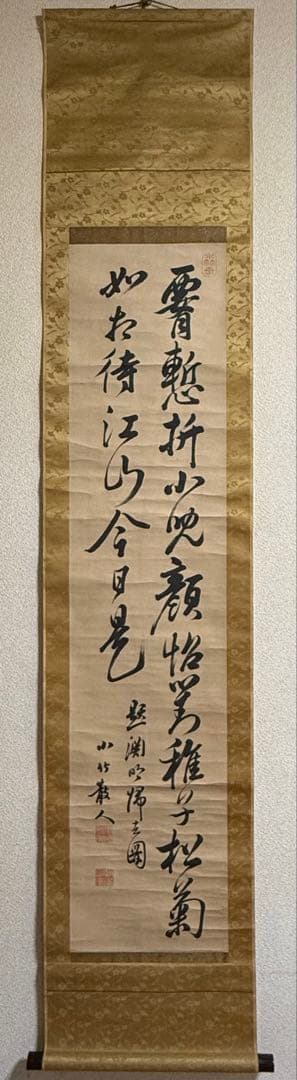 腰慙折小児顔怡對稚子松菊
如相待江山今日是
題淵明帰去圖
小竹散人